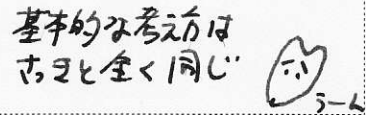 基本的な考え方は
さっきと全く同じ
うーん